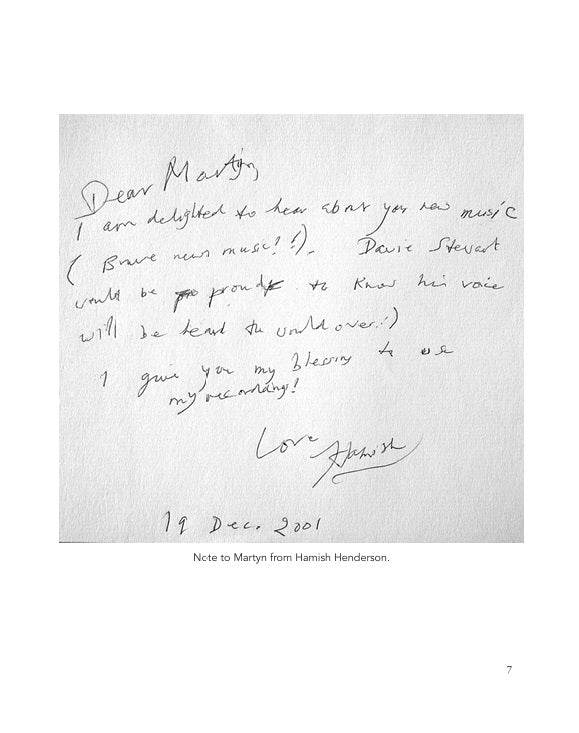 Dear Martyn,
I am delighted to hear about your new music
(Brave new music!!). Davie Stewart
would be proud to know his voice
will be heard the world over :)
I give you my blessing to use
my recordings!
Love Hamish
19 Dec. 2001
Note to Martyn from Hamish Henderson.
7